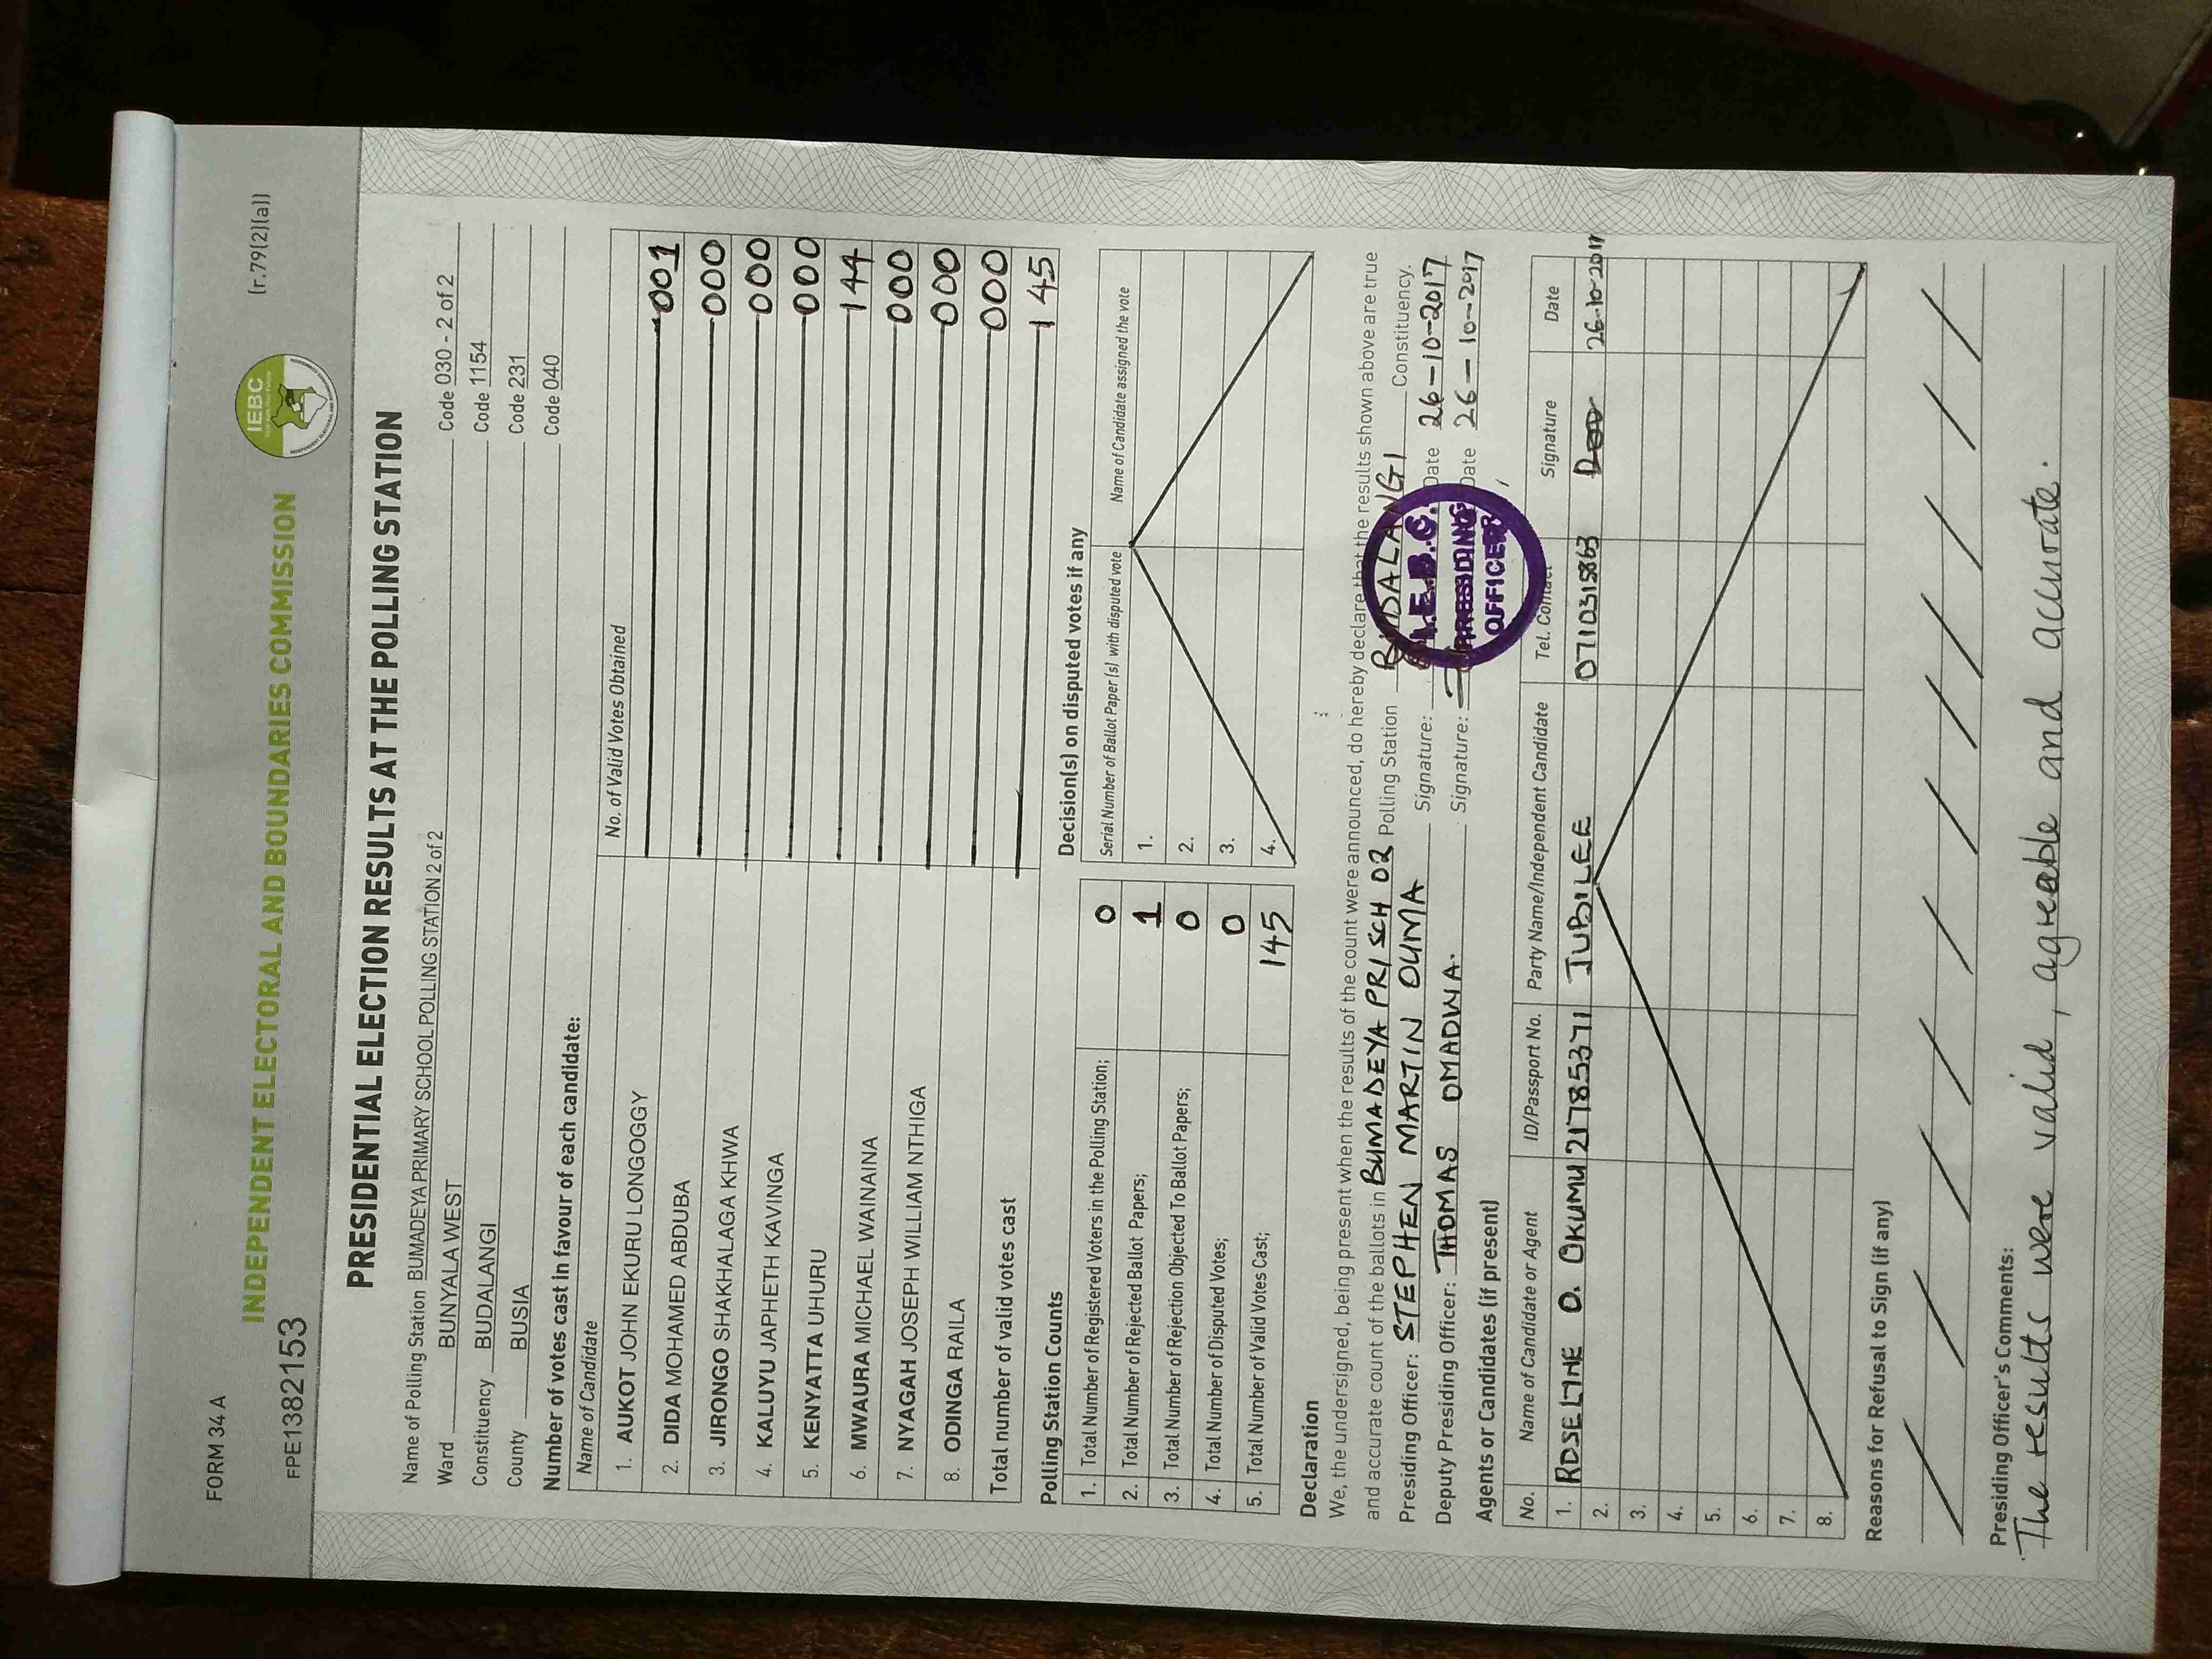 FORM 34 A
(r.79(2)(a))
IEBC
INDEPENDENT ELECTORAL AND BOUNDARIES COMMISSION
FPE1382153
PRESIDENTIAL ELECTION RESULTS AT THE POLLING STATION
Name of Polling Station BUMADEYA PRIMARY SCHOOL POLLING STATION 2 of 2 Code 030 - 2 of 2
Ward BUNYALA WEST Code 1154
Constituency BUDALANGI Code 231
County BUSIA Code 040
Number of votes cast in favour of each candidate:
Name of Candidate No. of Valid Votes Obtained
1. AUKOT JOHN EKURU LONGOGGY 001
2. DIDA MOHAMED ABDUBA 000
3. JIRONGO SHAKHALAGA KHWA 000
4. KALUYU JAPHETH KAVINGA 000
5. KENYATTA UHURU 144
6. MWAURA MICHAEL WAINAINA 000
7. NYAGAH JOSEPH WILLIAM NTHIGA 000
8. ODINGA RAILA 000
Total number of valid votes cast 145
Polling Station Counts
1. Total Number of Registered Voters in the Polling Station; 0
2. Total Number of Rejected Ballot Papers; 1
3. Total Number of Rejection Objected To Ballot Papers; 0
4. Total Number of Disputed Votes; 0
5. Total Number of Valid Votes Cast; 145
Decision(s) on disputed votes if any
Serial Number of Ballot Paper (s) with disputed vote Name of Candidate assigned the vote
1.
2.
3.
4.
Declaration
We, the undersigned, being present when the results of the count were announced, do hereby declare that the results shown above are true
and accurate count of the ballots in BUMADEYA PRI SCH 02 Polling Station BUDALANGI Constituency.
Presiding Officer: STEPHEN MARTIN OUMA Signature: Date 26-10-2017
Deputy Presiding Officer: THOMAS OMADWA. Signature: Date 26-10-2017
I.E.B.C.
PRESIDING
OFFICER
Agents or Candidates (if present)
No. Name of Candidate or Agent ID/Passport No. Party Name/Independent Candidate Tel. Contact Signature Date
1. ROSELINE O. OKUMU 217853371 JUBILEE 0710315863 26-10-2017
2.
3.
4.
5.
6.
7.
8.
Reasons for Refusal to Sign (if any)
Presiding Officer's Comments:
The results were valid, agreeable and accurate.